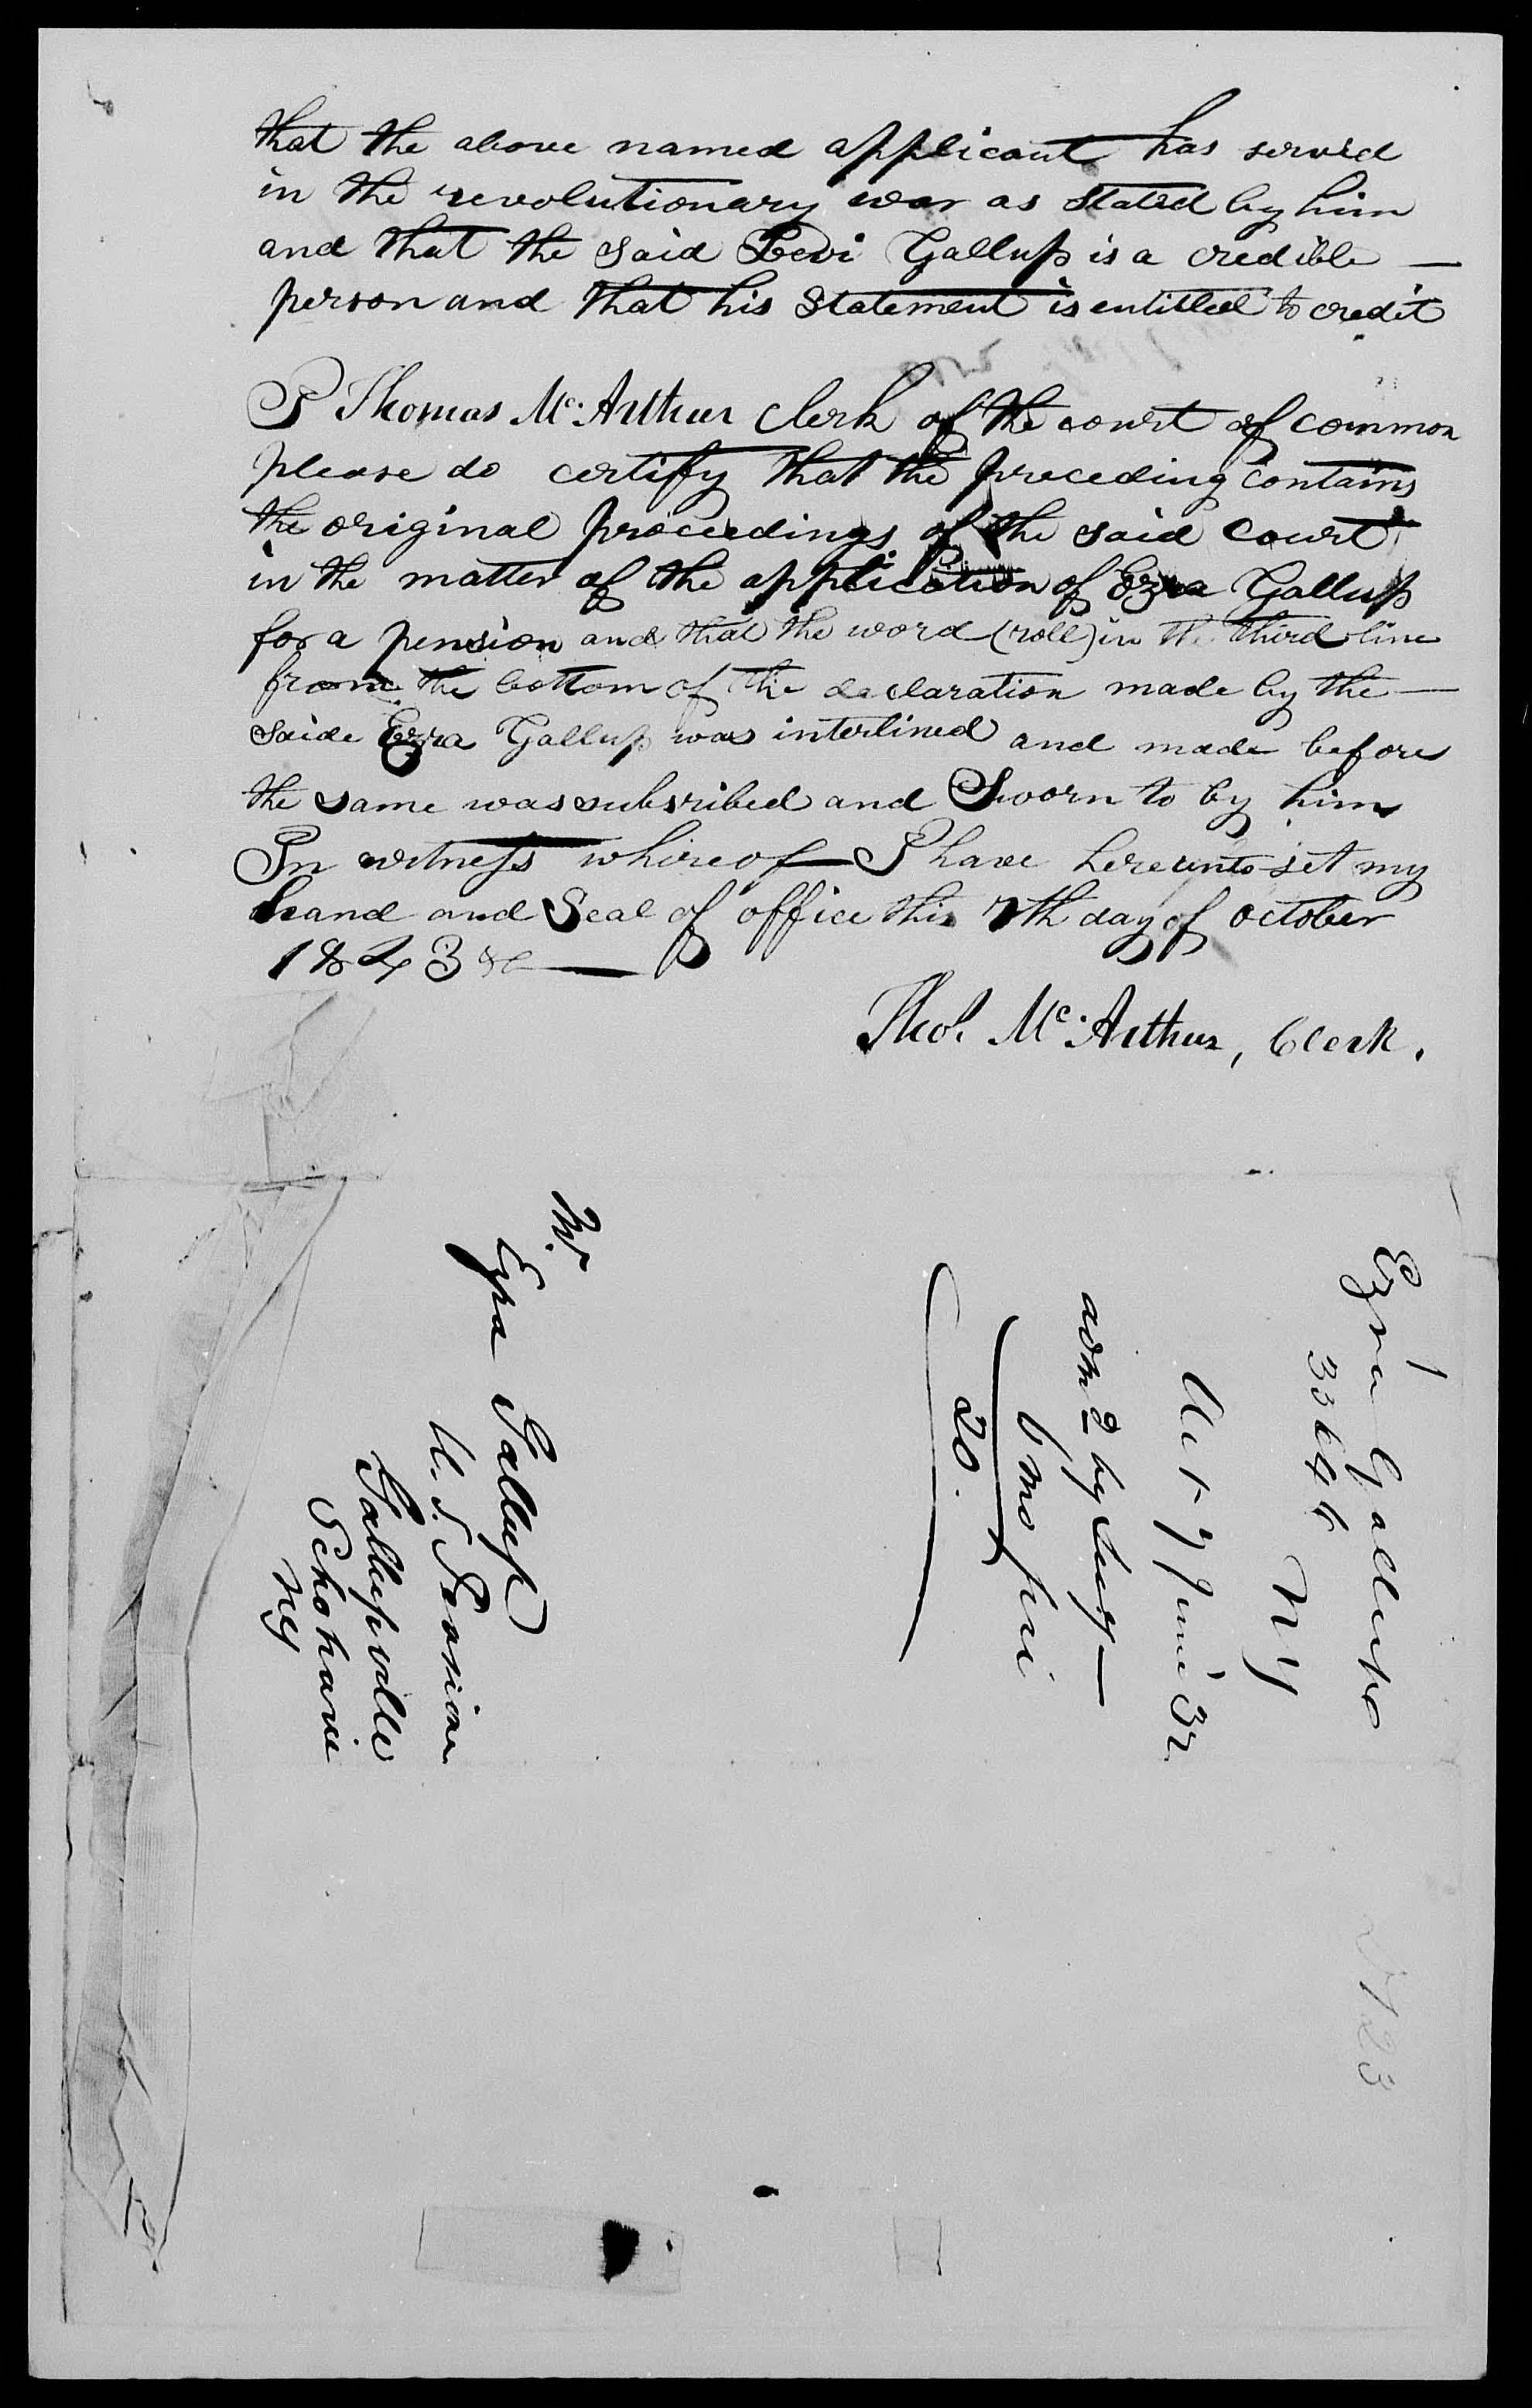 that the above named applicant has served
in the revolutionary war as stated by him
and that the said Levi Gallup is a credible —
person and that his Statement is entitled to credit
I Thomas Mc. Arthur Clerk of the court of common
please do certify that the preceding contains
the original proceedings of the said Court
in the matter of the application of Ezra Gallup
for a pension and that the word (roll) in the third line
from the bottom of the declaration made by the —
saide Ezra Gallup was interlined and made before
the same was subsribed and Sworn to by him
In witness whireof I have hereunto set my
hand and Seal of office this 7th day of October
1843 &c
Tho. Mc. Arthur, Clerk.
Ezra Gallup
NY
Act 7 June 32
20.
Mr.
Ezra Gallup
U. S. Pension
Gallupville
Schoharie
NY